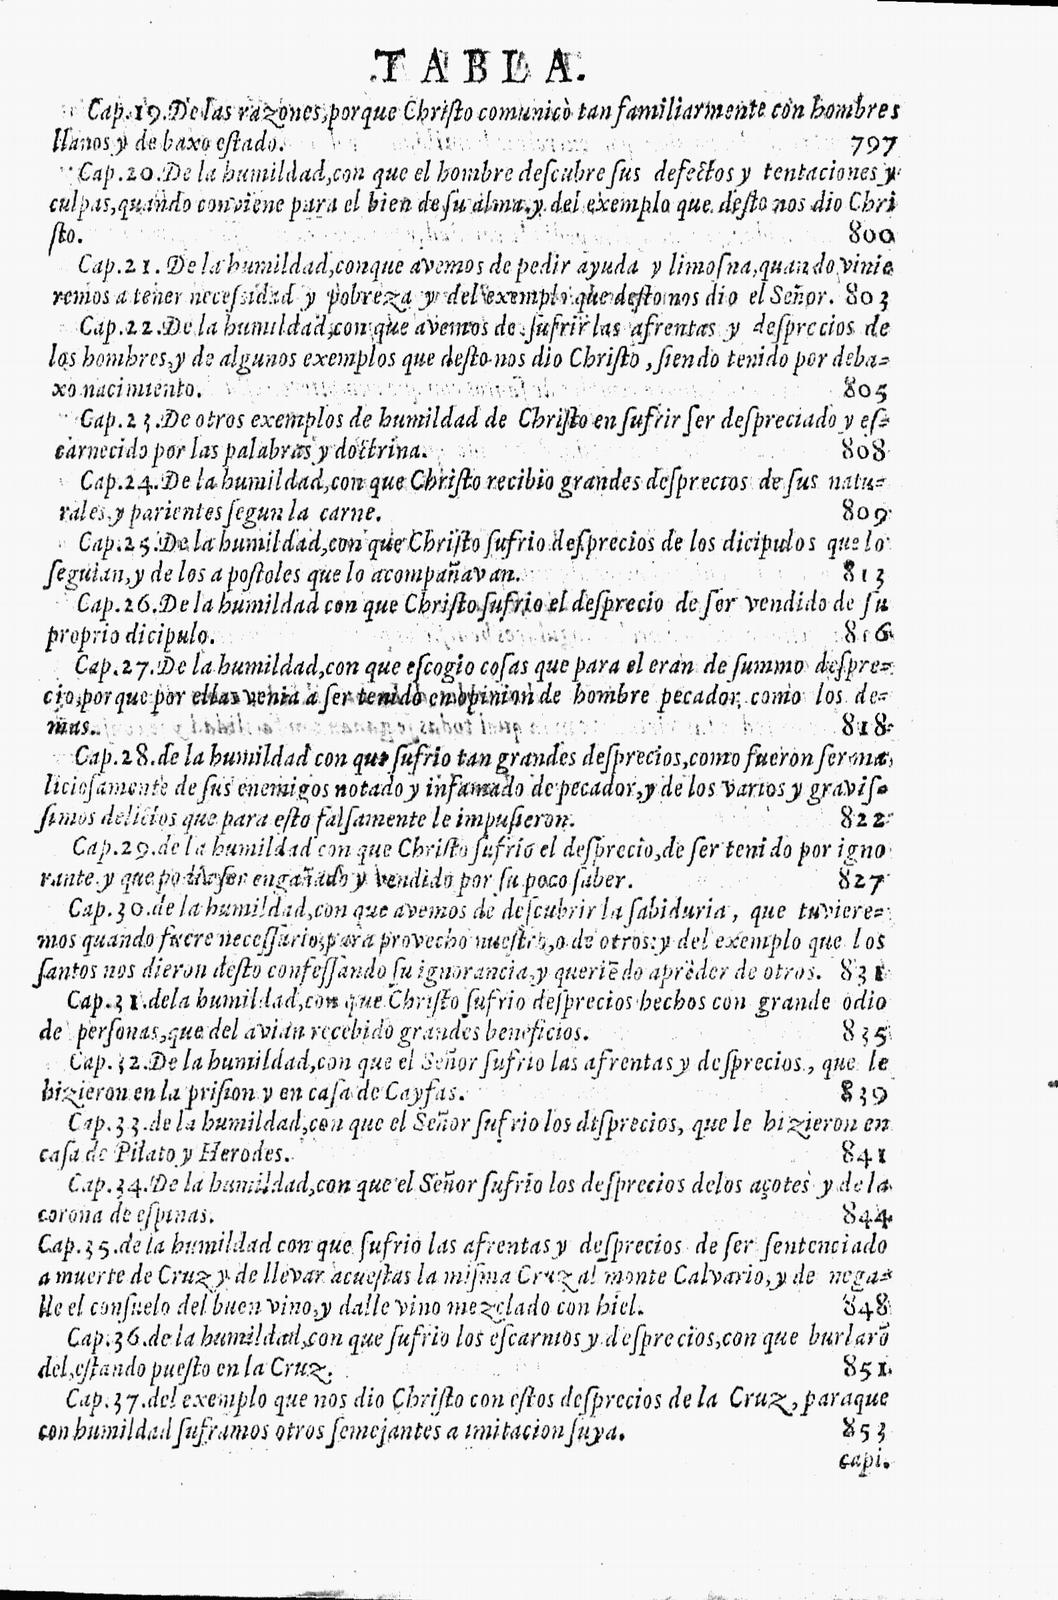 TABLA.
Cap.19.De las razones,porque Christo comunicò tan familiarmente con hombres
llanos y de baxo estado. 797
Cap.20.De la humildad,con que el hombre descubre sus defectos y tentaciones y
culpas,quando conviene para el bien de su alma,y del exemplo que desto nos dio Chri
sto. 800
Cap.21.De la humildad,conque avemos de pedir ayuda y limosna,quando vinie
remos a tener necessidad y pobreza y del exemplo que desto nos dio el Señor. 803
Cap.22.De la humildad,con que avemos de sufrir las afrentas y desprecios de
los hombres,y de algunos exemplos que desto nos dio Christo, siendo tenido por deba-
xo nacimiento. 805
Cap.23.De otros exemplos de humildad de Christo en sufrir ser despreciado y es-
carnecido por las palabras y doctrina. 808
Cap.24.De la humildad,con que Christo recibio grandes desprecios de sus natu-
rales,y parientes segun la carne. 809
Cap.25.De la humildad,con que Christo sufrio desprecios de los dicipulos que lo
seguian,y de los apostoles que lo acompañavan. 813
Cap.26.De la humildad con que Christo sufrio el desprecio de ser vendido de su
proprio dicipulo. 816
Cap.27.De la humildad,con que escogio cosas que para el eran de summo despre-
cio,porque por ellas venia a ser tenido en opinion de hombre pecador, como los de-
mas. 818
Cap.28.de la humildad con que sufrio tan grandes desprecios,como fueron ser ma
liciosamente de sus enemigos notado y infamado de pecador,y de los varios y gravis-
simos delictos que para esto falsamente le impusieron. 822
Cap.29.de la humildad con que Christo sufrio el desprecio,de ser tenido por igno
rante y que podia ser engañado y vendido por su poco saber. 827
Cap.30.de la humildad,con que avemos de descubrir la sabiduria, que tuviere-
mos quando fuere necessario,para provecho nuestro,o de otros:y del exemplo que los
santos nos dieron desto confessando su ignorancia,y queriẽdo aprẽder de otros. 831
Cap.31.dela humildad,con que Christo sufrio desprecios hechos con grande odio
de personas,que del avian recebido grandes beneficios. 835
Cap.32.De la humildad,con que el Señor sufrio las afrentas y desprecios, que le
hizieron en la prision y en casa de Cayfas. 839
Cap.33.de la humildad,con que el Señor sufrio los desprecios, que le hizieron en
casa de Pilato y Herodes. 841
Cap.34.De la humildad,con que el Señor sufrio los desprecios delos açotes y de la
corona de espinas. 844
Cap.35.de la humildad con que sufrio las afrentas y desprecios de ser sentenciado
a muerte de Cruz y de llevar acuestas la misma Cruz al monte Calvario,y de nega-
lle el consuelo del buen vino,y dalle vino mezclado con hiel. 848
Cap.36.de la humildad,con que sufrio los escarnios y desprecios,con que burlarõ
del,estando puesto en la Cruz. 851
Cap.37.del exemplo que nos dio Christo con estos desprecios de la Cruz, paraque
con humildad suframos otros semejantes a imitacion suya. 853
capi.